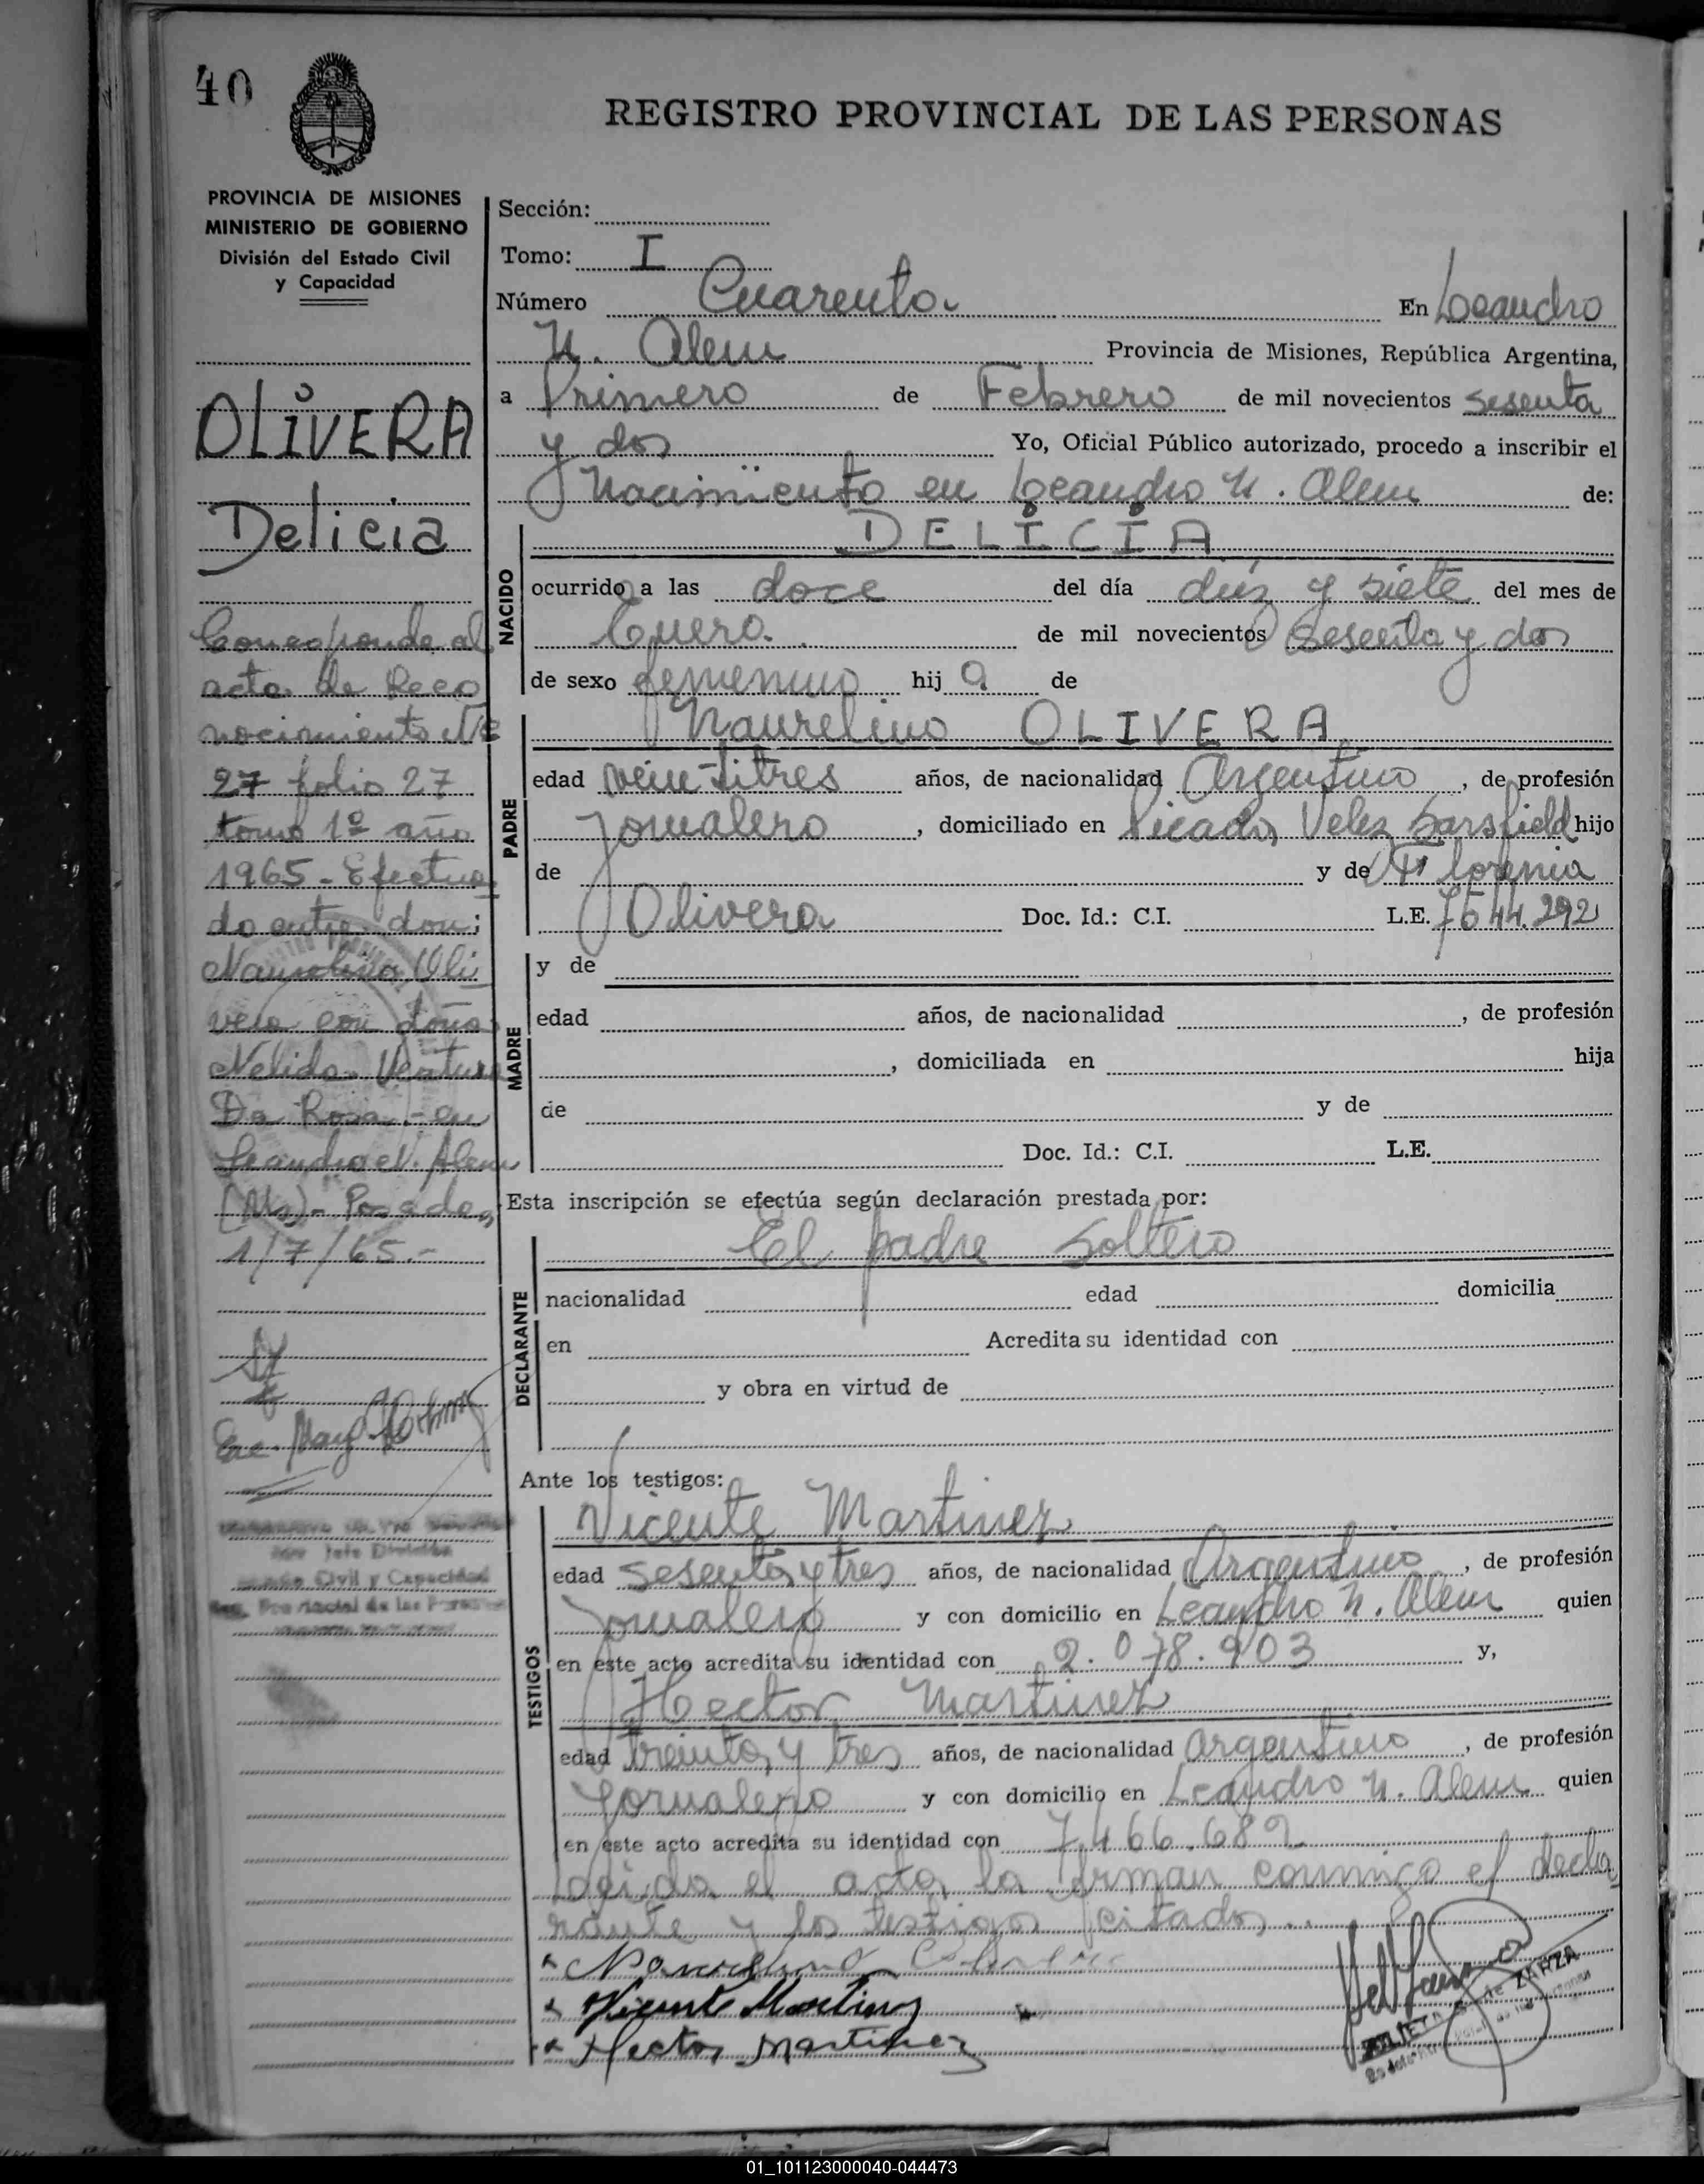 40
REGISTRO PROVINCIAL DE LAS PERSONAS
PROVINCIA DE MISIONES
MINISTERIO DE GOBIERNO
División del Estado Civil
y Capacidad
OLIVERA
Delicia
Corresponde al
acta de Reco
nocimiento Nº
27 folio 27
tomo 1º año
1965 - Efectua
do entre don:
Naurelino Oli
vera con doña
Nelida Ventura
Da Rosa - en
Leandro N. Alem
(Ms) - Posadas,
1/7/65.-
Jefe División
Civil y Capacidad
Sección:
Tomo: I
Número Cuarenta En Leandro
N. Alem Provincia de Misiones, República Argentina,
a Primero de Febrero de mil novecientos sesenta
y dos Yo, Oficial Público autorizado, procedo a inscribir el
Nacimiento en Leandro N. Alem de:
DELICIA
NACIDO
ocurrido a las doce del día diez y siete del mes de
Enero de mil novecientos sesenta y dos
de sexo femenino hija de
Naurelino OLIVERA
PADRE
edad veintitres años, de nacionalidad Argentino, de profesión
Jornalero, domiciliado en Picada Velez Sarsfield hijo
de y de Florenia
Olivera Doc. Id.: C.I. L.E. 7644.292
MADRE
y de
edad años, de nacionalidad , de profesión
, domiciliada en hija
de y de
Doc. Id.: C.I. L.E.
Esta inscripción se efectúa según declaración prestada por:
El padre Soltero
DECLARANTE
nacionalidad edad domicilia
en Acredita su identidad con
y obra en virtud de
Ante los testigos:
TESTIGOS
Vicente Martinez
edad sesenta y tres años, de nacionalidad Argentino, de profesión
Jornalero y con domicilio en Leandro N. Alem quien
en este acto acredita su identidad con 2.078.903 y,
Hector Martinez
edad treinta y tres años, de nacionalidad Argentino, de profesión
Jornalero y con domicilio en Leandro N. Alem quien
en este acto acredita su identidad con 7.466.689
Leida el acta, la firman conmigo el decla
rante y los testigos citados.
Vicente Martinez
Hector Martinez
ZARZA
01_101123000040-044473